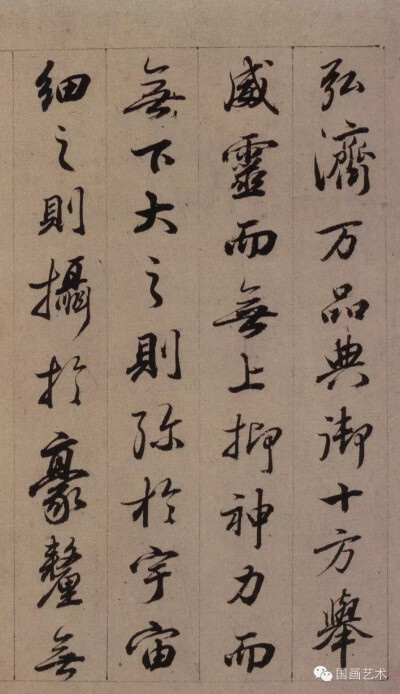 弘濟万品典御十方舉
威靈而無上抑神力而
無下大之則弥於宇宙
細之則攝於豪釐無
国画艺术